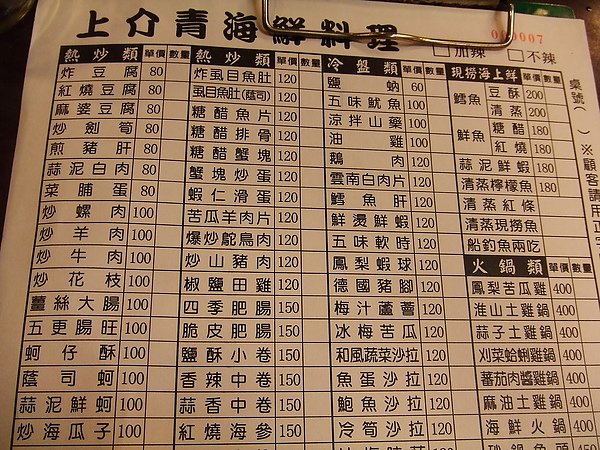 上介青海鮮料理
000007
□加辣 □不辣
熱炒類 單價 數量
炸豆腐 80
紅燒豆腐 80
麻婆豆腐 80
炒劍筍 80
煎豬肝 80
蒜泥白肉 80
菜脯蛋 80
炒螺肉 100
炒羊肉 100
炒牛肉 100
炒花枝 100
薑絲大腸 100
五更腸旺 100
蚵仔酥 100
蔭司蚵 100
蒜泥鮮蚵 100
炒海瓜子 100
熱炒類 單價 數量
炸虱目魚肚 120
虱目魚肚(蔭司) 120
糖醋魚片 120
糖醋排骨 120
糖醋蟹塊 120
蟹塊炒蛋 120
蝦仁滑蛋 120
苦瓜羊肉片 120
爆炒鴕鳥肉 120
炒山豬肉 120
椒鹽田雞 120
四季肥腸 150
脆皮肥腸 150
鹽酥小卷 150
香辣中卷 150
蒜香中卷 150
紅燒海參 150
冷盤類 單價 數量
鹽蚋 60
五味魷魚 100
涼拌山藥 100
油雞 100
鵝肉 120
雲南白肉片 120
鱈魚肝 120
鮮燙鮮蝦 120
五味軟時 120
鳳梨蝦球 120
德國豬腳 120
梅汁蘆薈 120
冰梅苦瓜 120
和風蔬菜沙拉 120
魚蛋沙拉 120
鮑魚沙拉 120
冷筍沙拉 120
現撈海上鮮 單價 數量
鱈魚 豆酥 200
清蒸 200
鮮魚 糖醋 180
紅燒 180
蒜泥鮮蝦 180
清蒸檸檬魚 180
清蒸紅條
清蒸現撈魚
船釣魚兩吃
火鍋類 單價 數量
鳳梨苦瓜雞 400
淮山土雞鍋 400
蒜子土雞鍋 400
刈菜蛤蜊雞鍋 400
蕃茄肉醬雞鍋 400
麻油土雞鍋 400
海鮮火鍋 400
砂鍋魚頭
桌號( )
※顧客請用正